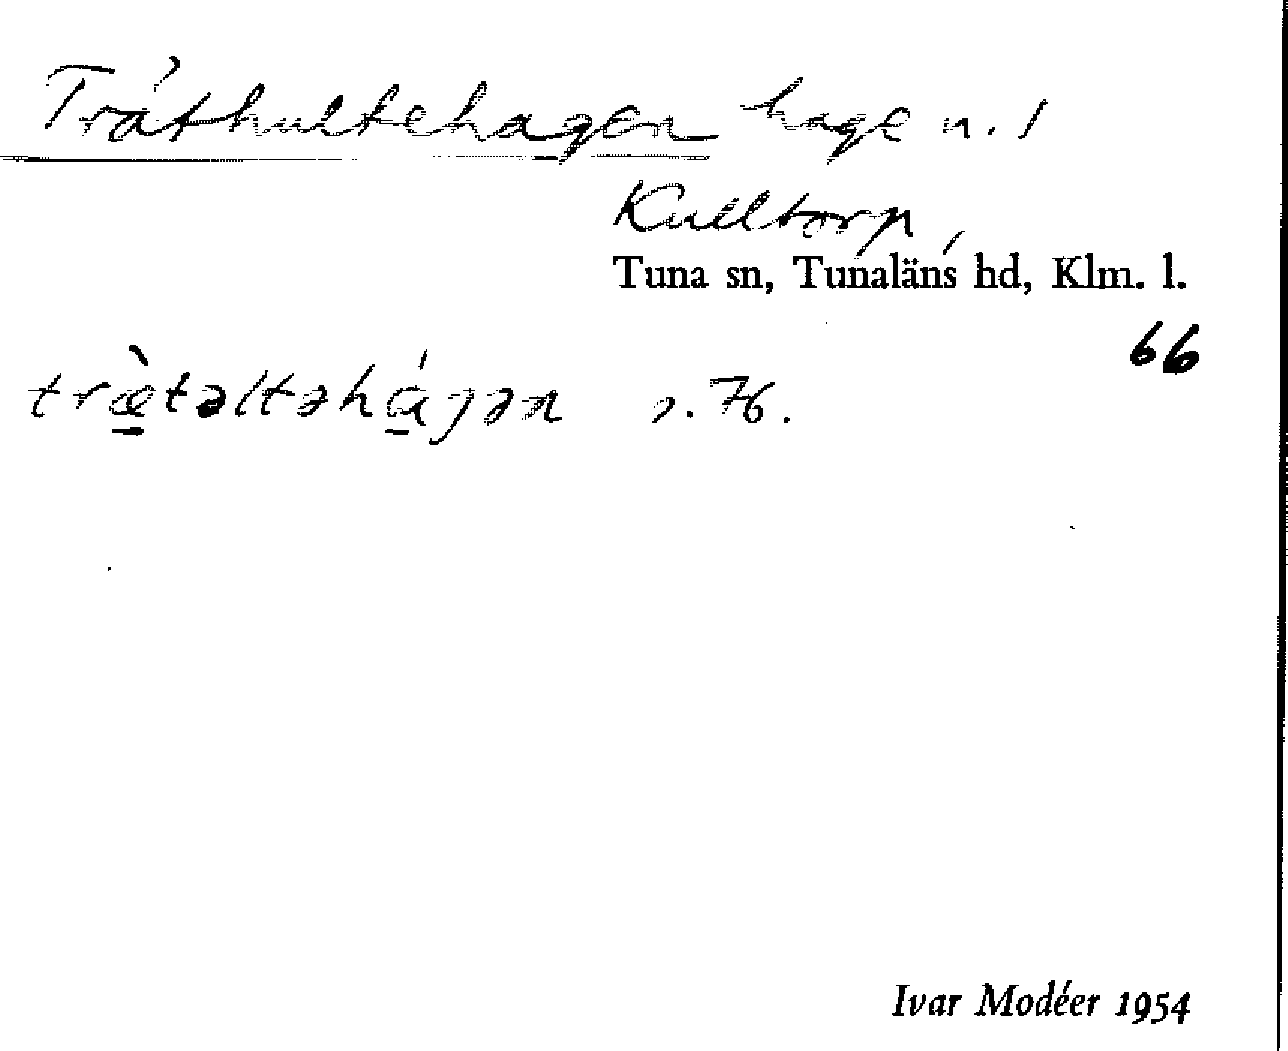 Träthultehagen hage n. 1
Kulltorp,
Tuna sn, Tunaläns hd, Klm. l.
66
træ̀təltəhágən s. 76.
Ivar Modéer 1954